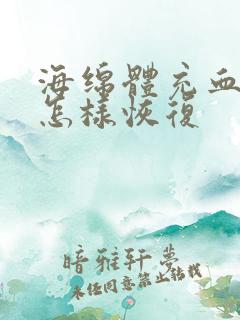 海绵體充血
怎樣恢復
暗雅轩夢
未经同意禁止转载